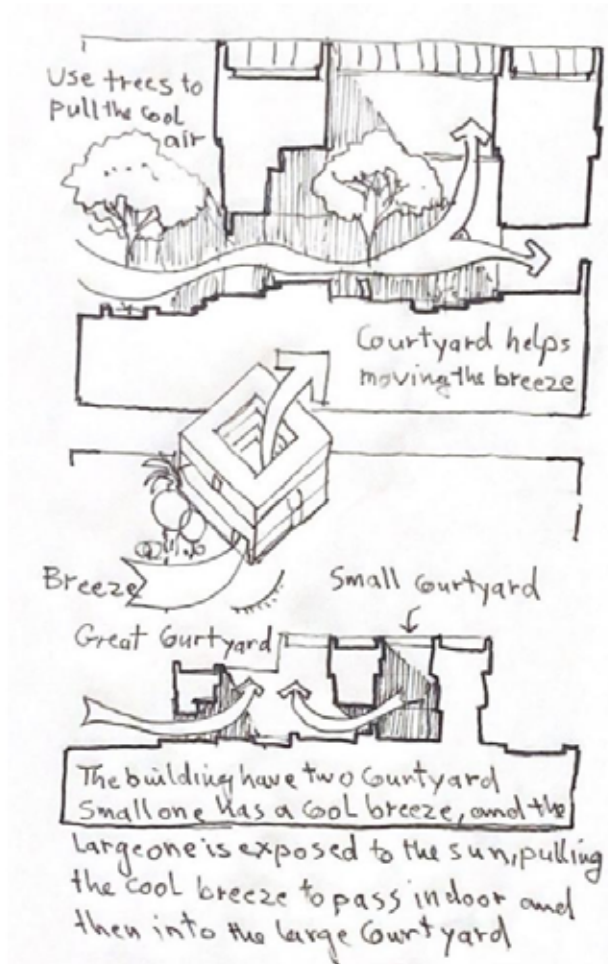 Use trees to
pull the cool
air
Courtyard helps
moving the breeze
Breeze
Small Courtyard
Great Courtyard
The building have two Courtyard
Small one has a cool breeze, and the
large one is exposed to the sun, pulling
the cool breeze to pass indoor and
then into the large Courtyard